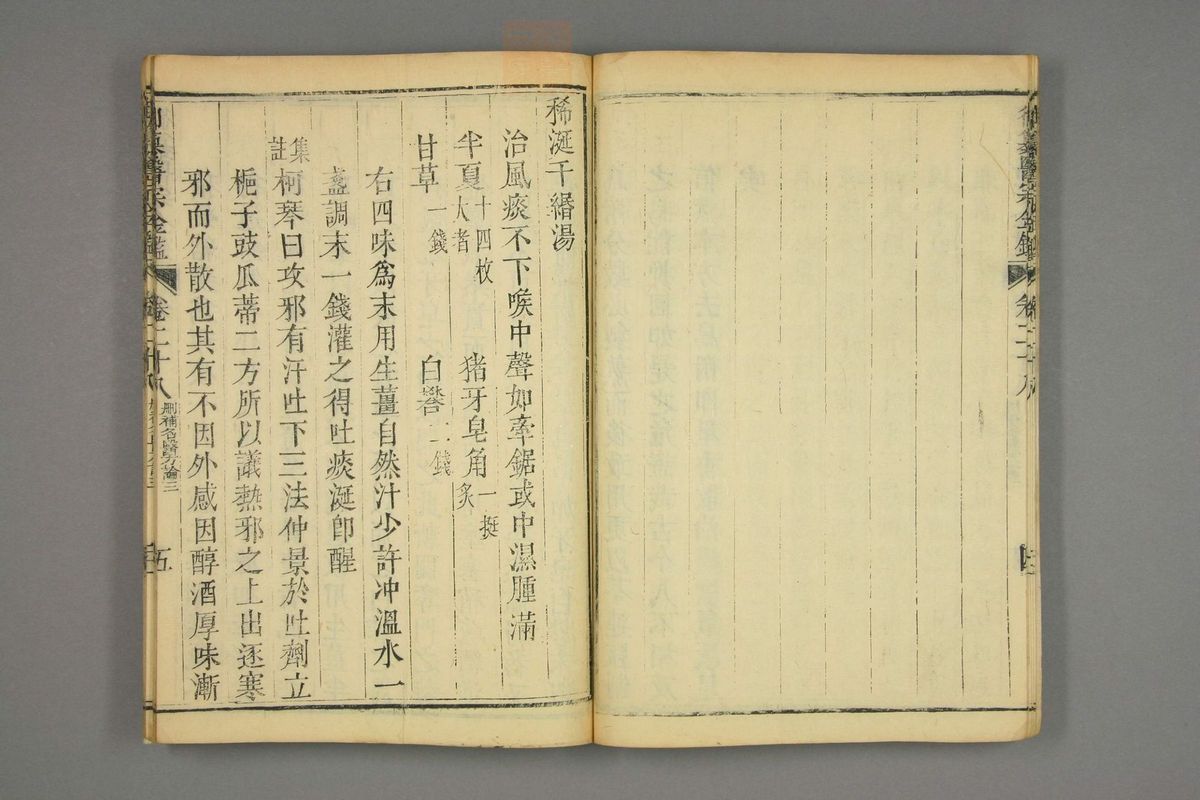 御纂醫宗金鑑 卷二十八
稀涎千緡湯
治風痰不下喉中聲如牽鋸或中濕腫滿
半夏十四枚大者 猪牙皂角一挺炙
甘草一錢 白礬一錢
右四味爲末用生薑自然汁少許冲溫水一
盞調末一錢灌之得吐痰涎卽醒
集註柯琴曰攻邪有汗吐下三法仲景於吐劑立
梔子豉瓜蒂二方所以議熱邪之上出逐寒
邪而外散也其有不因外感因醇酒厚味漸
御纂醫宗金鑑 卷二十八 刪補名醫方論三 五